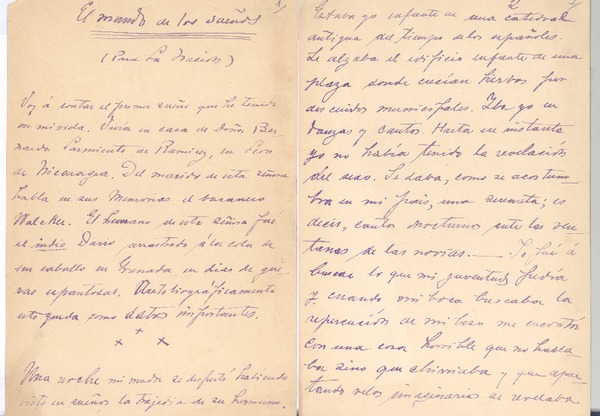 El mundo de los sueños
1/
(Para La Nación)
Voy á contar el primer sueño que he tenido
en mi vida. Vivía en casa de doña Ber-
narda Sarmiento de Ramírez, en León
de Nicaragua. Del marido de esta señora
habla en sus Memorias el bucanero
Walcker. El hermano de esta señora fué
el indio Darío arrastrado á la cola de
un caballo en Granada en días de gue-
rras espantosas. Autobiográficamente
esto queda como datos importantes.
+
x x
Una noche mi madre se despertó habiendo
visto en sueños la tragedia de su hermano.
2/
Estaba yo enfrente de una catedral
antigua del tiempo de los españoles.
Se alzaba el edificio enfrente de una
plaza donde crecían hierbas por
descuidos municipales. Iba yo en
danzas y cantos. Hasta ese instante
yo no había tenido la revelación
del sexo. Se daba, como se acostum-
bra en mi país, una serenata; es
decir, cantos nocturnos ante las ven-
tanas de las novias. — Yo fuí á
buscar lo que mi juventud pedía
y cuando mi boca buscaba la
repercusión de mi beso me encontré
con una cosa horrible que no habla-
ba sino que chirriaba y que apar-
tando velos imaginarios se revelaba